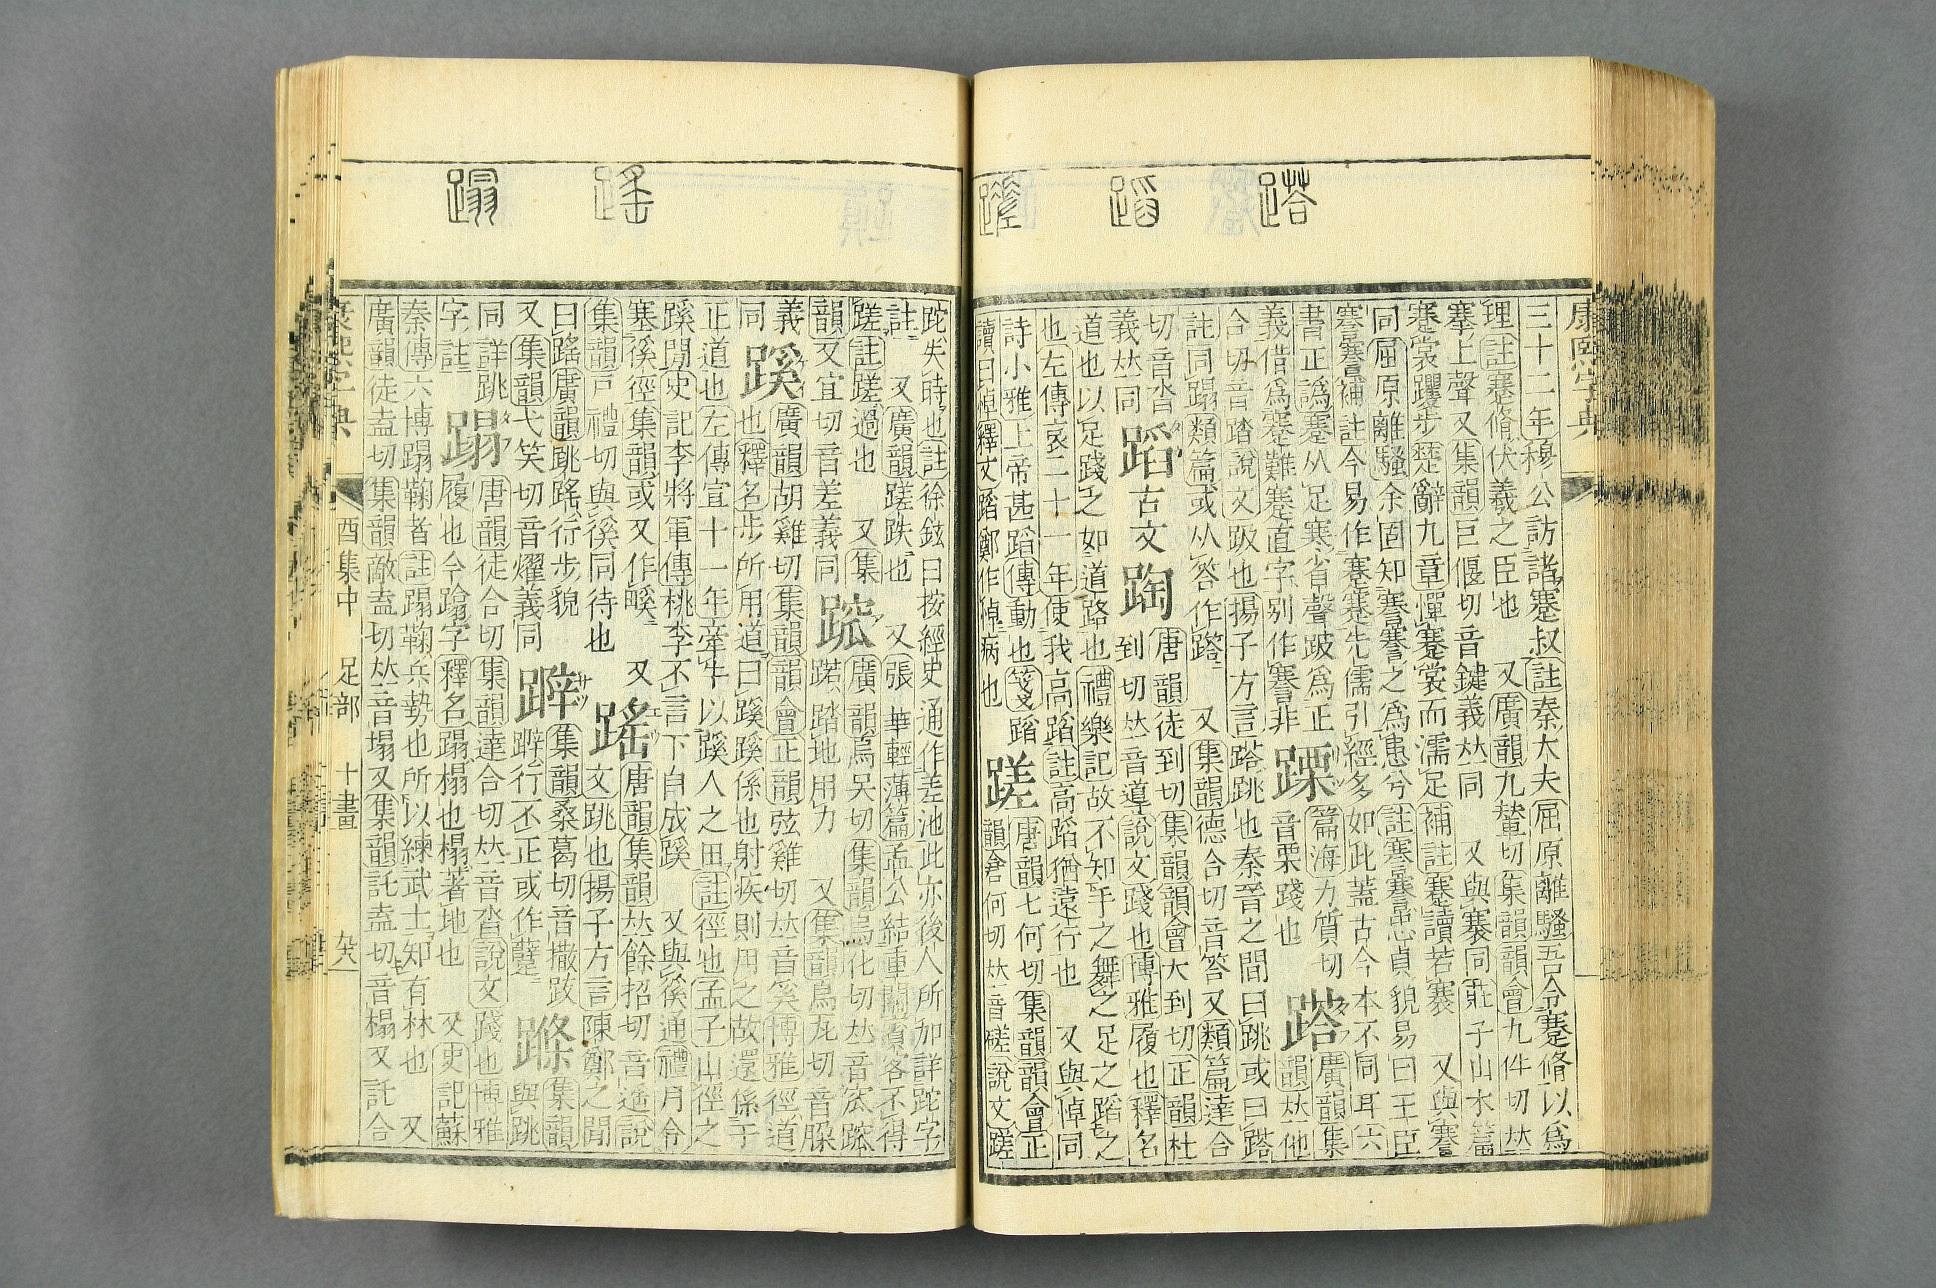 塔 蹈 蹉
康熙字典
三十二年穆公訪諸蹇叔註秦大夫屈原離騷吾令蹇脩以爲
理註蹇脩伏羲之臣也 又廣韻九輦切集韻韻會九件切𠀤
搴上聲又集韻巨偃切音鍵義𠀤同 又與蹇同莊子山水篇
蹇裳躩步楚辭九章憚蹇裳而濡足補註蹇讀若褰 又與謇
同屈原離騷余固知謇謇之爲患兮註謇謇忠貞貌易曰王臣
謇謇補註今易作蹇蹇先儒引經多如此蓋古今本不同耳六
書正譌蹇从足寒省聲跛爲正
義借爲蹇難蹇直字別作謇非
䠫
篇海力質切
音栗踐也
㗳
廣韻集
韻𠀤他
合切音踏說文趿也揚子方言㗳跳也秦晉之閒曰跳或曰㗳
註同蹋類篇或从答作㗳 又集韻德合切音答又類篇達合
切音沓
義𠀤同
蹈
古文
䠬
唐韻徒到切集韻韻會大到切正韻杜
到切𠀤音導說文踐也博雅履也釋名
道也以足踐之如道路也禮樂記故不知手之舞之足之蹈之
也左傳哀二十一年使我高蹈註高蹈猶遠行也 又與悼同
詩小雅上帝甚蹈傳動也箋蹈
讀曰悼釋文蹈鄭作悼病也
蹉
唐韻七何切集韻韻會正
韻倉何切𠀤音磋說文蹉
跎失時也註徐鉉曰按經史通作差池此亦後人所加詳跎字
註 又廣韻蹉跌也 又張華輕薄篇孟公結重關賓客不得
蹉註蹉過也 又集
韻又宜切音差義同
䠸
廣韻烏吴切集韻烏化切𠀤音窊䠸
踞踏地用力 又集韻烏瓦切音䯛
義
同
蹊
廣韻胡雞切集韻韻會正韻弦雞切𠀤音奚博雅徑道
也釋名步所用道曰蹊蹊係也射疾則用之故還係于
正道也左傳宣十一年牽牛以蹊人之田註徑也孟子山徑之
蹊閒史記李將軍傳桃李不言下自成蹊 又與徯通禮月令
塞徯徑集韻或又作嵠 又
集韻戸禮切與徯同待也
䠛
唐韻集韻𠀤餘招切音遥說
文跳也揚子方言陳鄭之閒
曰䠛廣韻跳䠛行步貌
又集韻弋笑切音燿義同
𨄮
集韻桑葛切音撒跋
𨄮行不正或作躠
𨄭
集韻
與跳
同詳跳
字註
蹋
唐韻徒合切集韻達合切𠀤音沓說文踐也博雅
履也今蹹字釋名蹋榻也榻著地也 又史記蘇
秦傳六博蹋鞠者註蹋鞠兵勢也所以練武士知有材也 又
廣韻徒盍切集韻敵盍切𠀤音塌又集韻託盍切音榻又託合
康熙字典 酉集中 足部 十畫
䠛 蹋